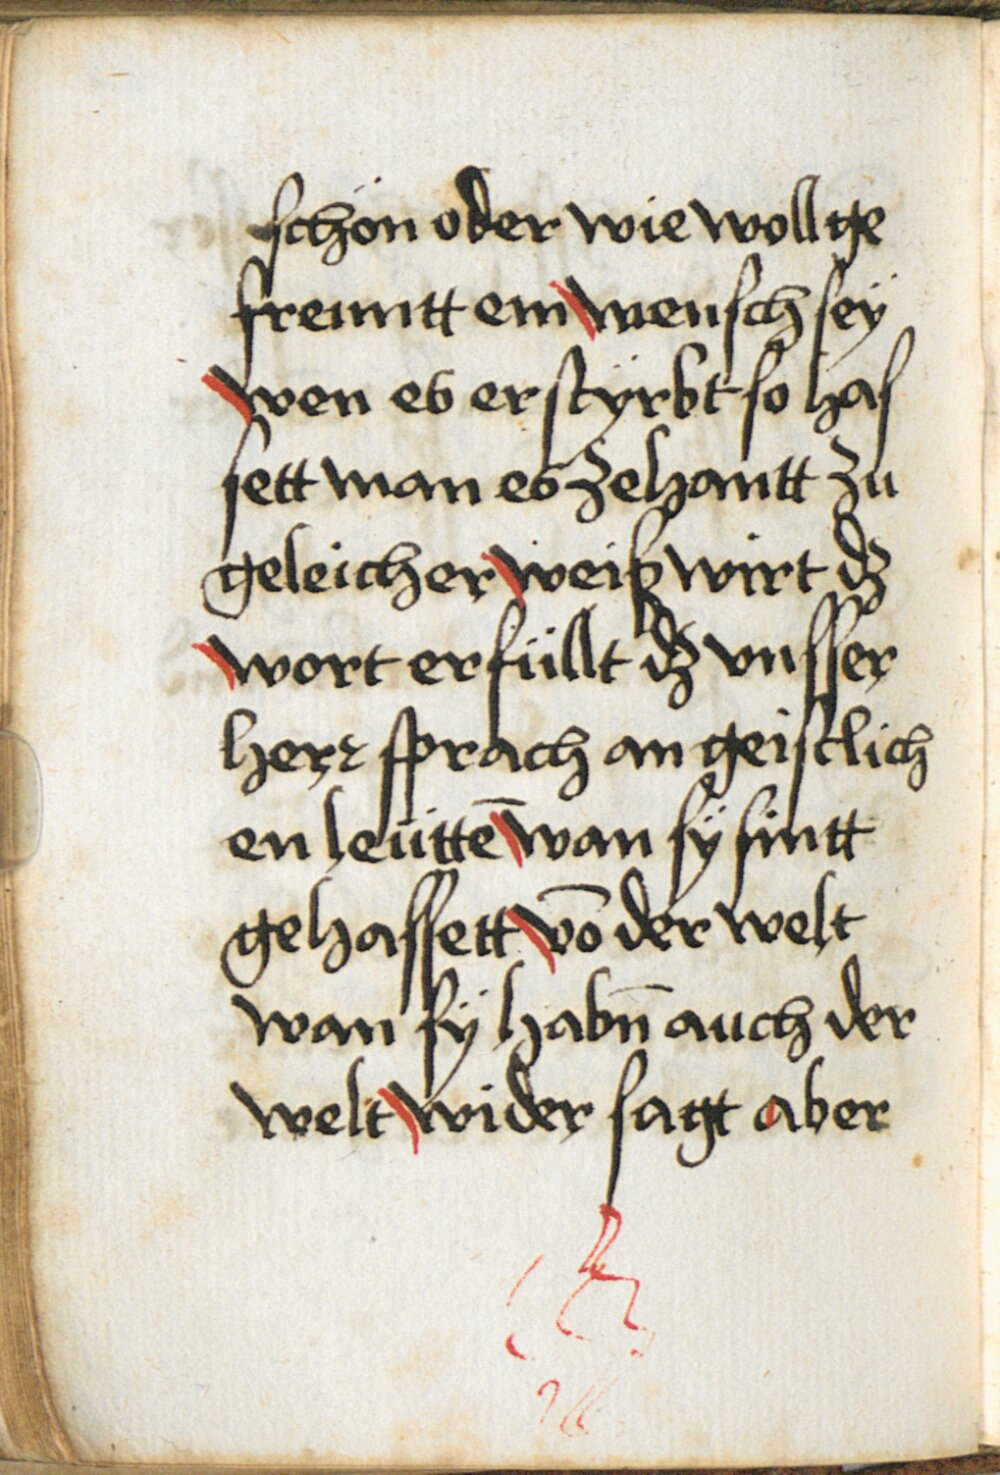 schön oder wie woll ge
freuntt ein mensch seÿ
wen es erstÿrbt so has
sett man es zehantt zu
geleicher weiß wirt dz
wort erfüllt dz vnsser
herr sprach an geistlich
en leüttē wan sÿ sintt
gehassett vō der welt
wan sÿ habn̄ auch der
welt wider sagt aber